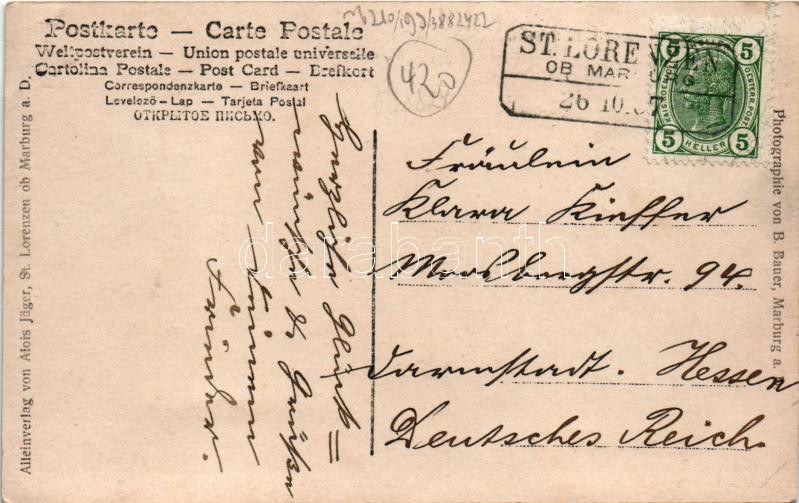 Postkarte — Carte Postale
Weltpostverein — Union postale universelle
Cartolina Postale - Post Card - Brefkort
Correspondenzkarte - Briefkaart
Levelező-Lap - Tarjeta Postal
ОТКРЫТОЕ ПИСЬМО.
420
ST. LORENZEN
OB MARBURG
26 10.07
5 5
KAIS. KOENIGL. OESTERR. POST
5 HELLER 5
Fräulein
Klara Kieffer
94.
Darmstadt. Hessen
Deutsches Reich.
Herzliche Glück=
wünsche & Grüße
von
Alleinverlag von Alois Jäger, St. Lorenzen ob Marburg a. D.
Photographie von B. Bauer, Marburg a.
darabanth